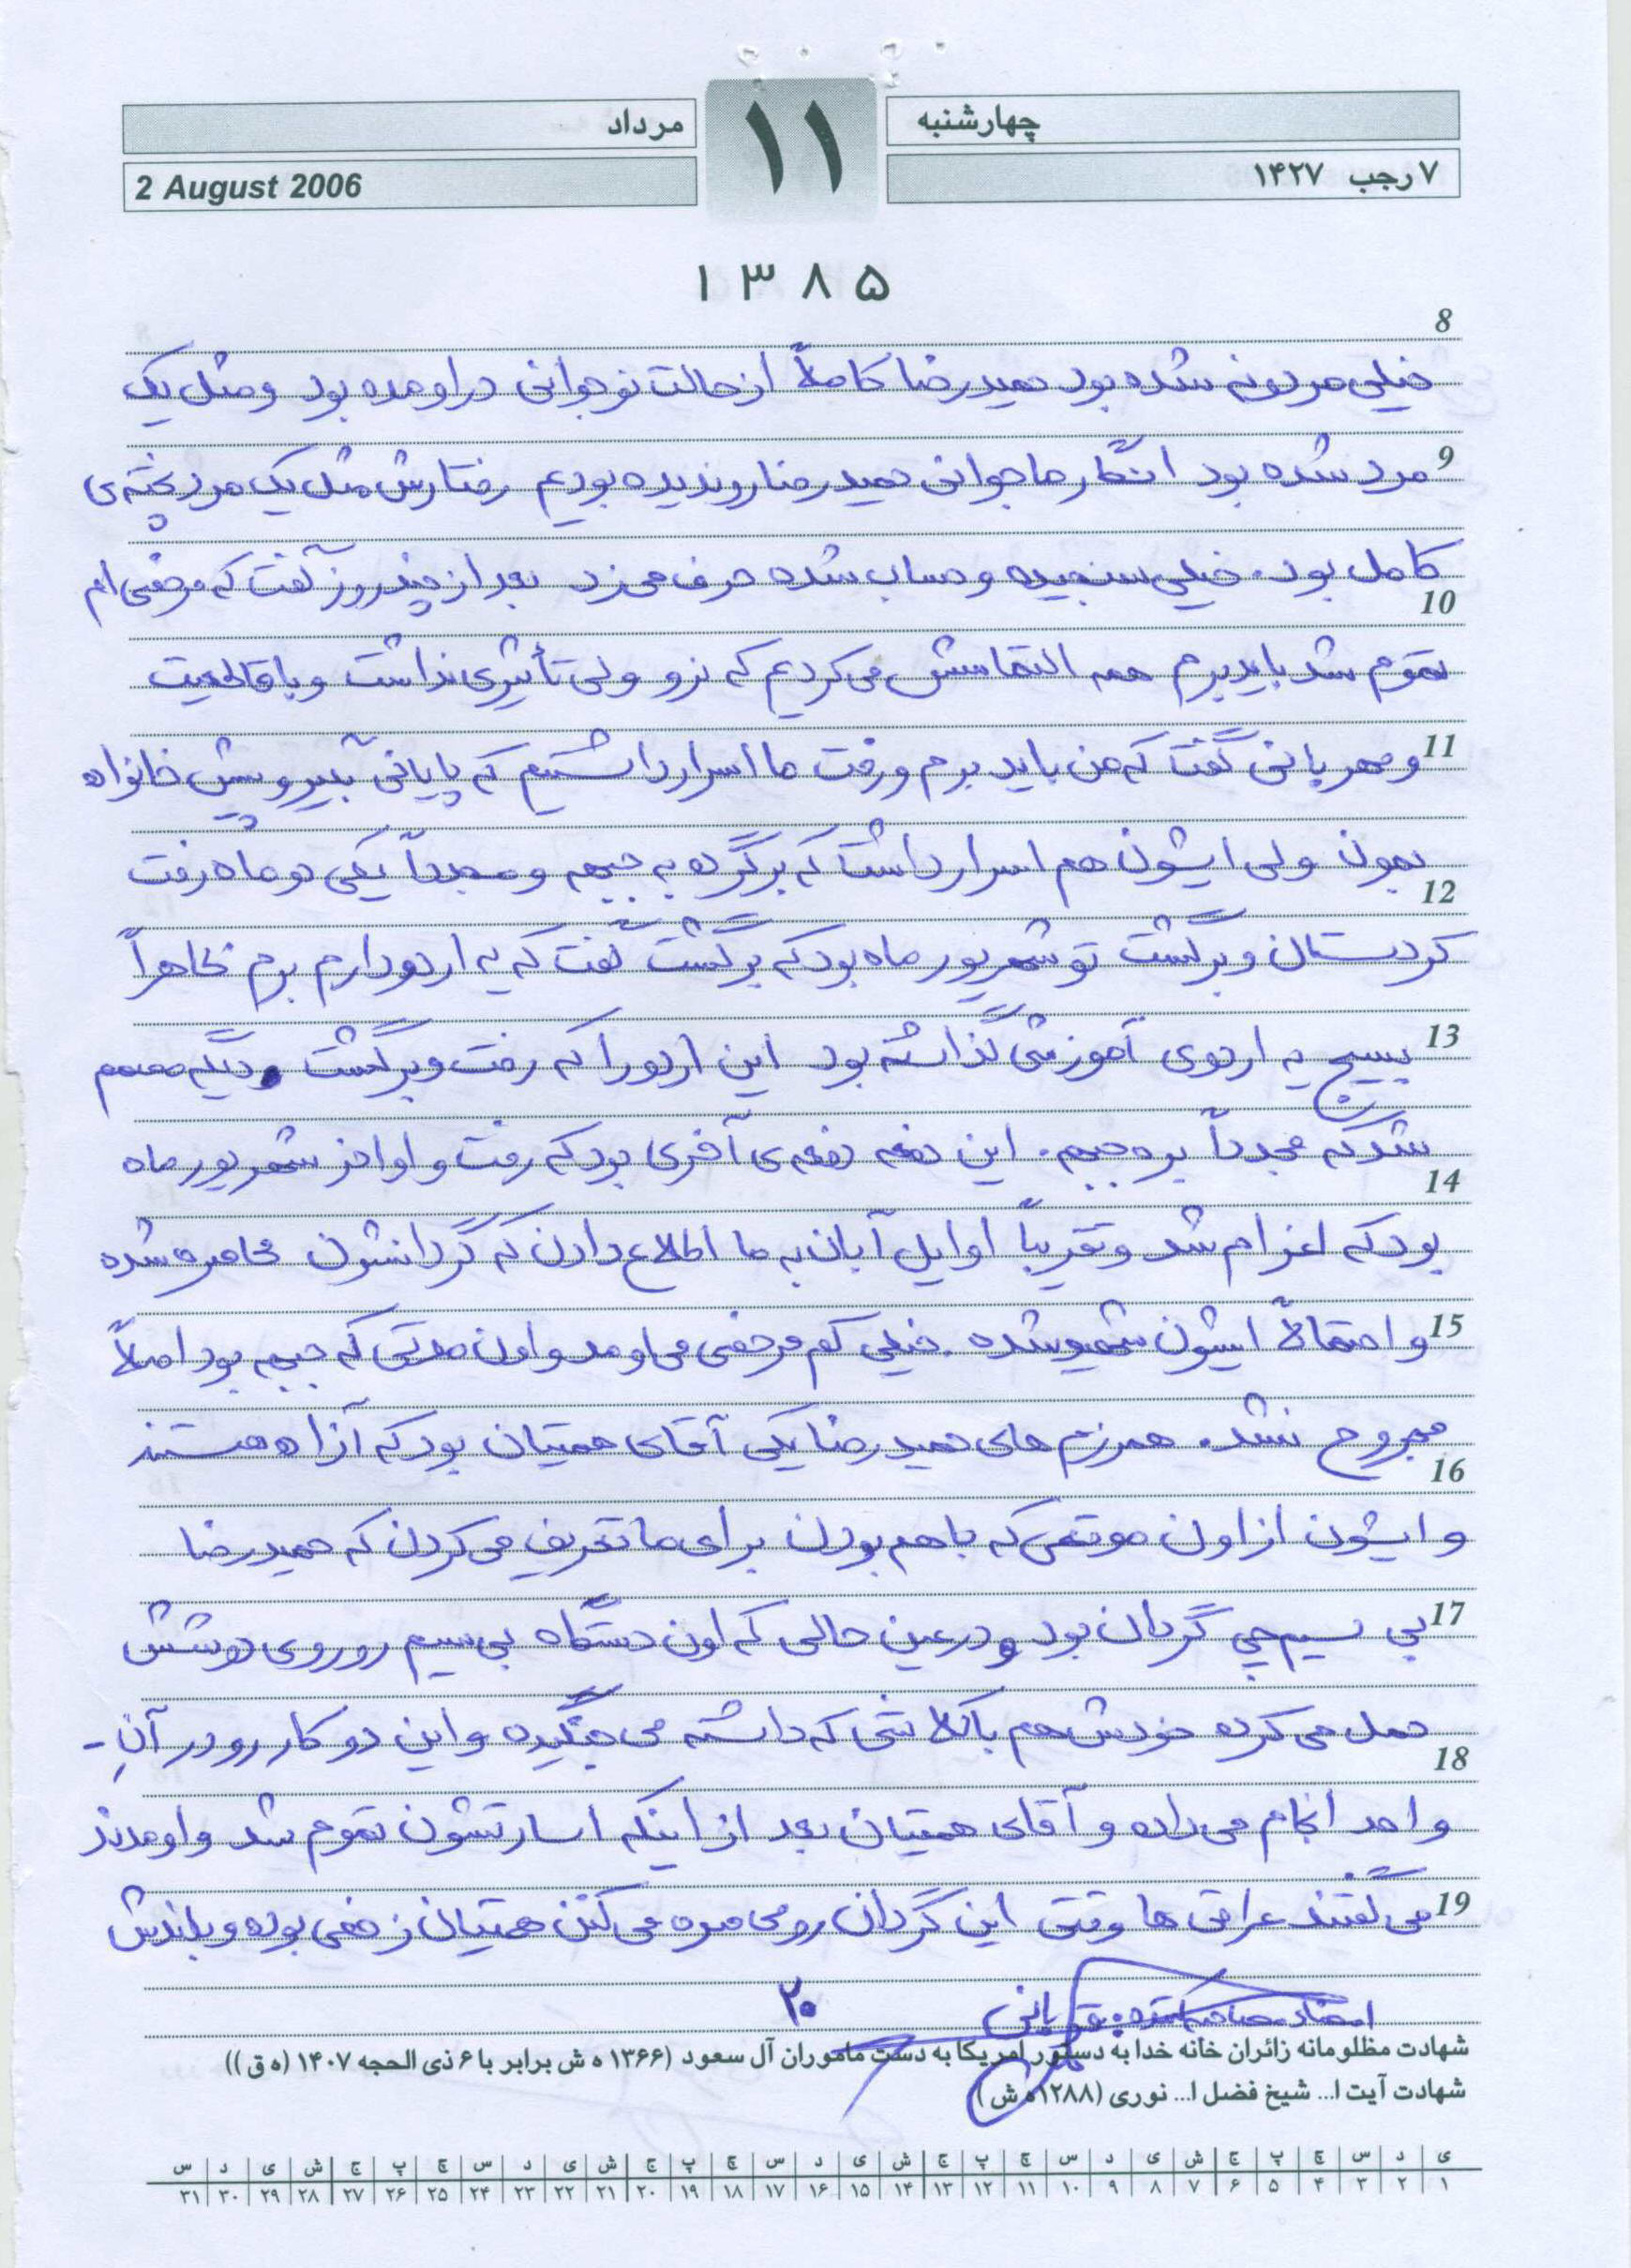 چهارشنبه ۱۱ مرداد
۷ رجب ۱۴۲۷ 2 August 2006
۱۳۸۵
8
خیلی مردونه شده بود حمیدرضا کاملاً از حالت نوجوانی در اومده بود و مثل یک
9
مرد شده بود انگار ما جوانی حمیدرضا رو ندیده بودیم رفتارش مثل یک مرد پخته‌ی
کامل بود. خیلی سنجیده و حساب شده حرف می زد بعد از چند روز گفت که مرخصی ام
10
تموم شد باید برم همه التماسش می کردیم که نرو ولی تأثیری نداشت و با قاطعیت
11
و مهربانی گفت که من باید برم و رفت ما اسرار داشتیم که پایانی بگیر و پیش خانواده
بمون ولی ایشون هم اسرار داشت که برگرده به جبهه و مجدداً یکی دو ماه رفت
12
کردستان و برگشت تو شهریور ماه بود که برگشت گفت که یه اردو دارم برم ظاهراً
13
بسیج یه اردوی آموزشی گذاشته بود این اردو را که رفت و برگشت دیگه مصمم
شد که مجدداً بره جبهه. این دفعه دفعه‌ی آخری بود که رفت و اواخر شهریور ماه
14
بود که اعزام شد و تقریباً اوایل آبان به ما اطلاع دادن که گردانشون محاصره شده
15
و احتمالاً ایشون شهید شده. خیلی کم مرخصی می اومد و اون مدتی که جبهه بود اصلاً
مجروح نشد. همرزم های حمیدرضا یکی آقای همتیان بود که آزاده هستند
16
و ایشون از اون موقعی که با هم بودن برای ما تعریف می کردن که حمیدرضا
17
بی سیم چی گردان بود و در عین حالی که اون دستگاه بی سیم رو روی دوشش
حمل می کرده خودش هم با کلاشی که داشته می جنگیده و این دو کار رو در آنِ -
18
واحد انجام می داده و آقای همتیان بعد از اینکه اسارتشون تموم شد و اومدند
19
می گفتند عراقی ها وقتی این گردان رو محاصره می کنن همتیان زخمی بوده و بلندش
۲۰
شهادت مظلومانه زائران خانه خدا به دستور امریکا به دست ماموران آل سعود (۱۳۶۶ ه ش برابر با ۶ ذی الحجه ۱۴۰۷ (ه ق))
شهادت آیت ا... شیخ فضل ا... نوری (۱۲۸۸ ه ش)
ی د س چ پ ج ش ی د س چ پ ج ش ی د س چ پ ج ش ی د س چ پ ج ش ی د س
۱ ۲ ۳ ۴ ۵ ۶ ۷ ۸ ۹ ۱۰ ۱۱ ۱۲ ۱۳ ۱۴ ۱۵ ۱۶ ۱۷ ۱۸ ۱۹ ۲۰ ۲۱ ۲۲ ۲۳ ۲۴ ۲۵ ۲۶ ۲۷ ۲۸ ۲۹ ۳۰ ۳۱